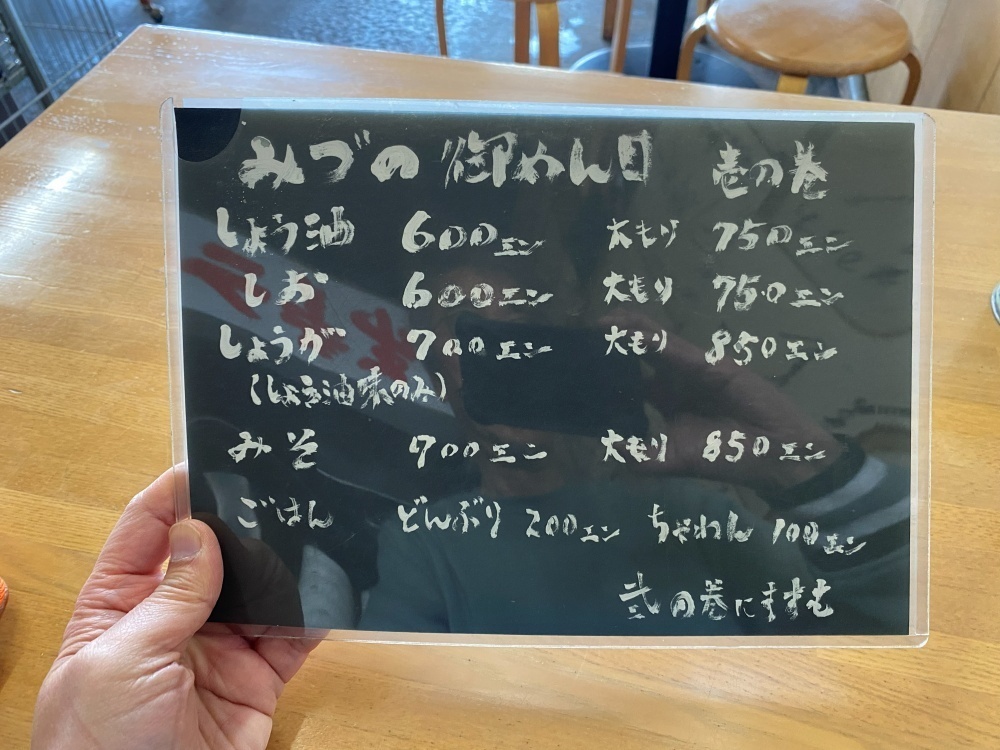 みづの 御めん目 壱の巻
しょう油 600エン 大もり 750エン
しお 600エン 大もり 750エン
しょうが 700エン 大もり 850エン
(しょう油味のみ)
みそ 700エン 大もり 850エン
ごはん どんぶり 200エン ちゃわん 100エン
弐の巻にすすむ